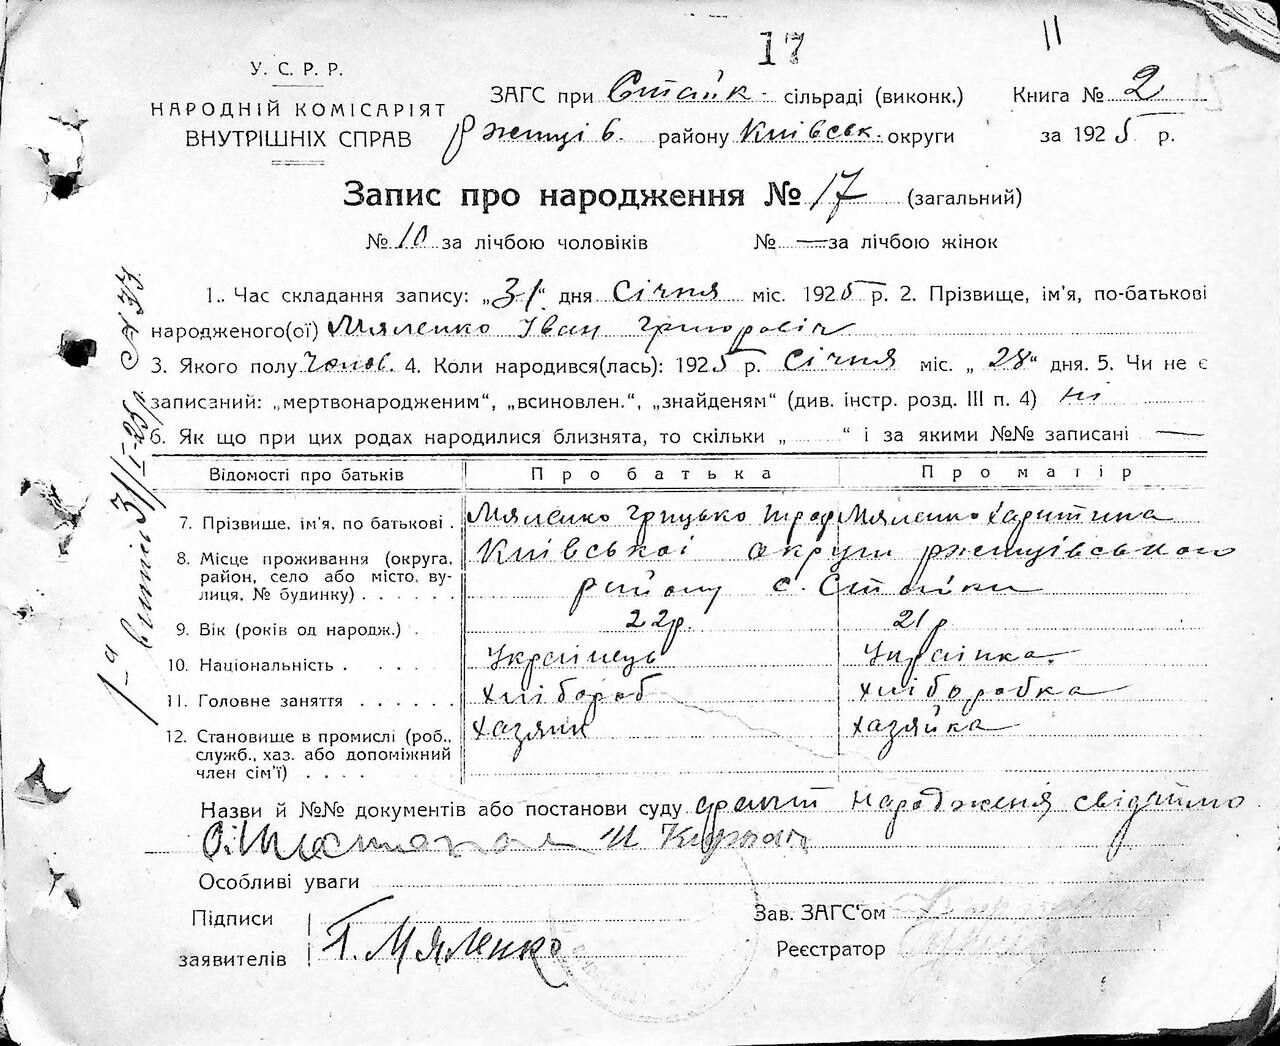 17
11
15
У. С. Р. Р.
НАРОДНІЙ КОМІСАРІЯТ
ВНУТРІШНІХ СПРАВ
ЗАГС при Стайк. сільраді (виконк.)
Ржищів. району Київськ. округи
Книга № 2
за 1925 р.
Запис про народження № 17 (загальний)
№ 10 за лічбою чоловіків № — за лічбою жінок
1.. Час складання запису: „31“ дня Січня міс. 1925 р. 2. Прізвище, ім’я, по-батькові
народженого(ої) Мяленко Іван Григоровіч
3. Якого полу Чолов. 4. Коли народився(лась): 1925 р. Січня міс. „28“ дня. 5. Чи не є
записаний: „мертвонародженим“, „всиновлен.“, „знайденям“ (див. інстр. розд. III п. 4) ні
6. Як що при цих родах народилися близнята, то скільки „ “ і за якими №№ записані —
Відомості про батьків Про батька Про матір
7. Прізвище, ім’я, по батькові . Мяленко Грицько Троф Мяленко Харитина
8. Місце проживання (округа, Київської округи ржищівського
район, село або місто, ву- району с. Стайки
лиця, № будинку) . . . . . .
9. Вік (років од народж.) . 22р. 21р
10. Національність . . . . Українець Українка.
11. Головне заняття . . . . . . Хлібороб хліборобка
12. Становище в промислі (роб., Хазяин хазяйка
служб., хаз. або допоміжний
член сім’ї) . . . .
Назви й №№ документів або постанови суду народженя
Особливі уваги
Підписи
заявителів Г. Мяленко
Зав. ЗАГС‘ом
Реєстратор
31/I-25р.